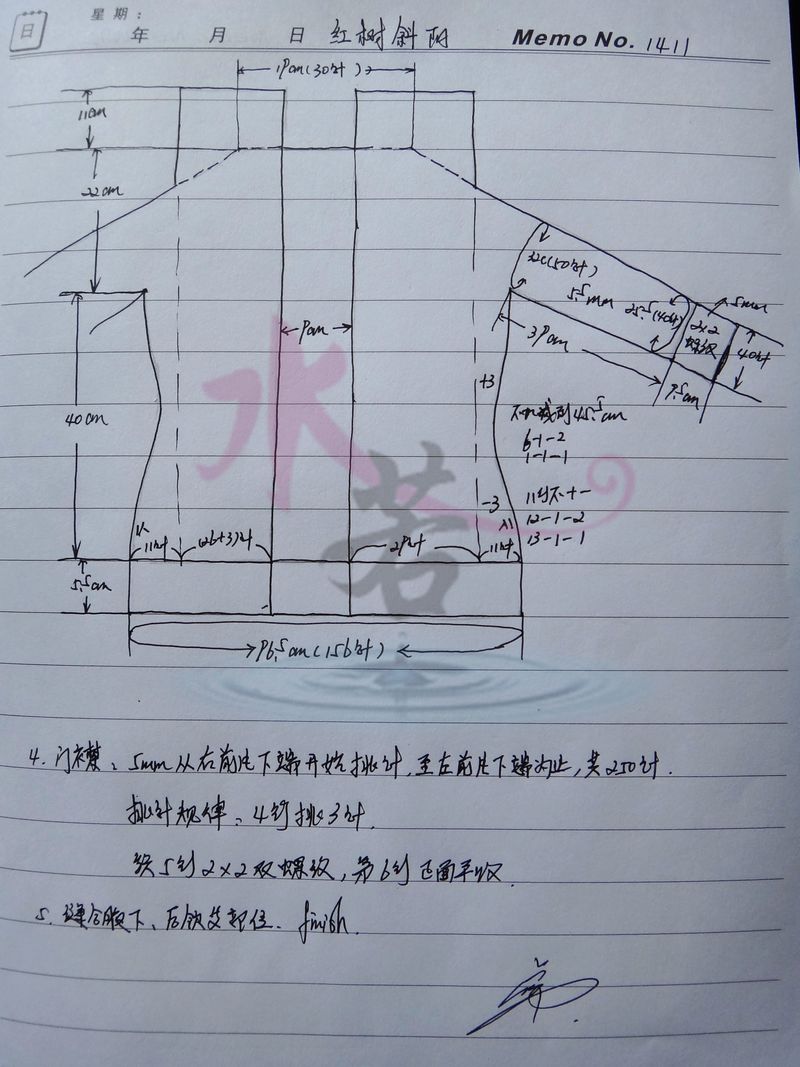 日
星 期：
年 月 日 红树斜阳 Memo No. 1411
19cm(30针)
11cm
22cm
32c(50针)
5.5mm
25.5(40针)
5mm
2×2
螺纹
40针
39cm
7.5cm
9cm
40cm
+3
-3
6-1-2
1-1-1
11针不+-
12-1-2
13-1-1
11针 (26+3)针 29针 11针
5.5cm
96.5cm(156针)
水若
4. 门襟、5mm从右前片下端开始挑针，至左前片下端为止，共250针.
挑针规律、4针挑3针.
织5行2×2双螺纹，第6行正面平收.
5. 缝合腋下、后领及起位. finish.